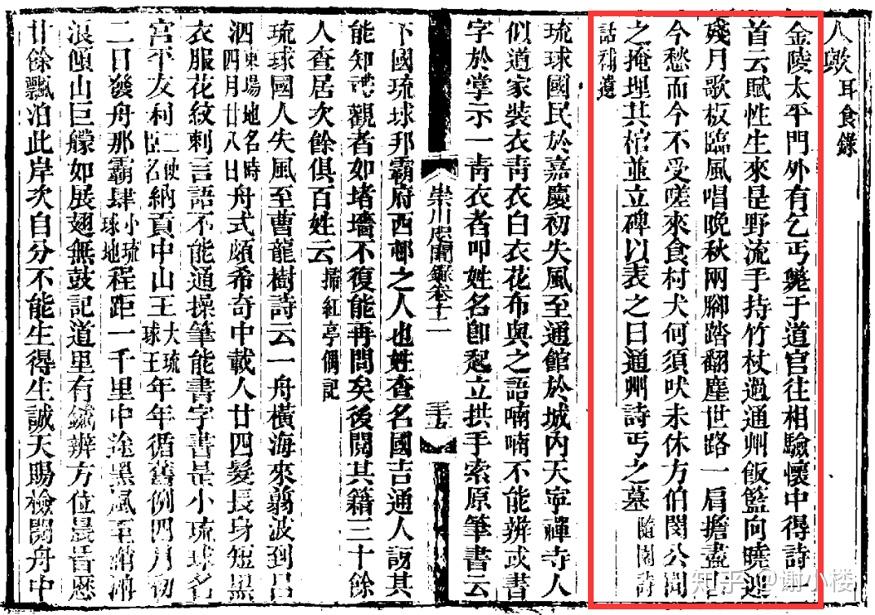 人歟 耳食錄
金陵太平門外有乞丐斃于道官往相驗懷中得詩
首云賦性生來是野流手持竹杖過通州飯籃向曉迎
殘月歌板臨風唱晚秋兩腳踏翻塵世路一肩擔盡古
今愁而今不受嗟來食村犬何須吠未休方伯閔公聞
之掩埋其棺並立碑以表之曰通州詩丐之墓 隨園詩
話補遺
琉球國民於嘉慶初失風至通館於城內天寧禪寺人
似道家裝衣青衣白衣花布與之語喃喃不能辨或書
字於掌示一青衣者叩姓名卽起立拱手索原筆書云
崇川咫聞錄卷十二 三十五
下國琉球邦霸府西邨之人也姓查名國吉通人訝其
能知 觀者如堵墻不復能再問矣後閱其籍三十餘
人查居次餘俱百姓云 掃紅亭偶記
琉球國人失風至曹龍樹詩云一舟橫海來翦波到呂
泗東場地名時四月廿八日舟式頗希奇中載人廿四髮長身短黑
衣服花紋刺言語不能通操筆能書字書是小琉球名
宮平友利二使臣名納貢中山王大琉球王年年循舊例四月初
二日發舟那霸肆小琉球地程距一千里中途黑風至
浪傾山巨艨如展翅無鼓記道里有鍼辨方位晨昏歷
廿餘飄泊此岸次自分不能生得生誠天賜檢閱舟中
知乎 @谢小楼